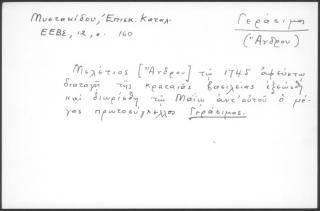 Μυστακίδου, Ἐπισκ. Καταλ.
ΕΕΒΣ, 12, σ. 160
Γεράσιμος
(Ἄνδρου)
Μελέτιος [Ἄνδρου] τῷ 1745 ἀφεύκτῳ
διαταγῇ τῆς κραταιᾶς βασιλείας ἐξεώθη
καὶ διωρίσθη τῷ Μαΐῳ ἀντ' αὐτοῦ ὁ μέ-
γας πρωτοσύγκελλος Γεράσιμος.